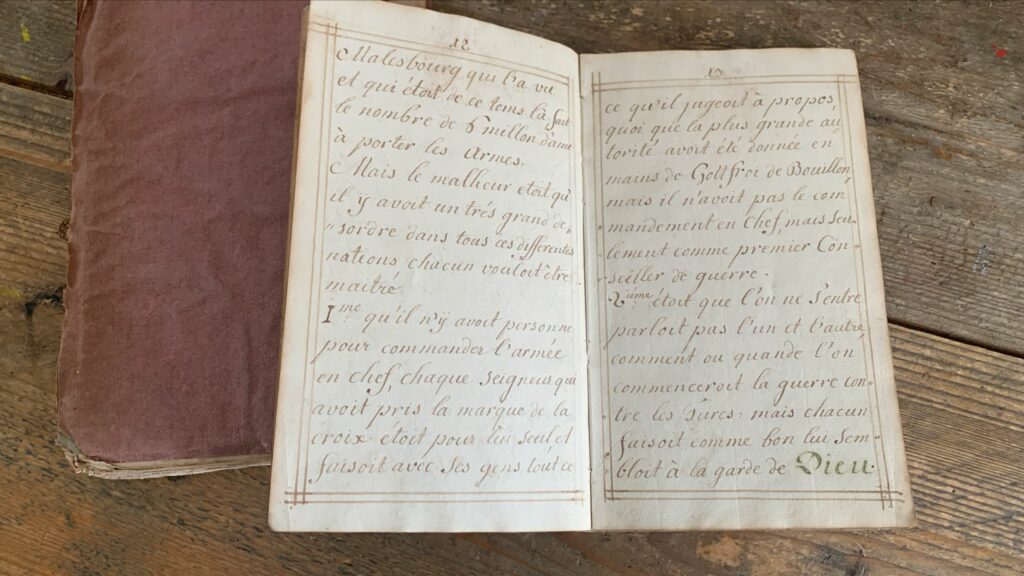 12
Malesbourg qui l'a vu
et qui étoit de ce tems là faut
le nombre de 6 millon d'ame
à porter les Armes.
Mais le malheur etoit qu'
il y avoit un trés grand de„
„sordre dans tous ces differentes
nations chacun vouloit être
maitre
1me qu'il n'y avoit personne
pour commander l'armée
en chef, chaque Seigneur qui
avoit pris la marque de la
croix etoit pour lui seul et
faisoit avec ses gens tout ce
13
ce qu'il jugeoit à propos,
quoi que la plus grande au
torité avoit été donnée en
mains de Gottfroi de Bouillon
mais il n'avoit pas le com
mandement en Chef, mais seu„
„lement comme premier Con„
„seiller de guerre.
étoit que l'on ne s'entre
parloit pas l'un et l'autre
comment ou quande l'on
commenceroit la guerre con„
„tre les Turcs: mais chacun
faisoit comme bon lui sem„
bloit à la garde de Dieu.